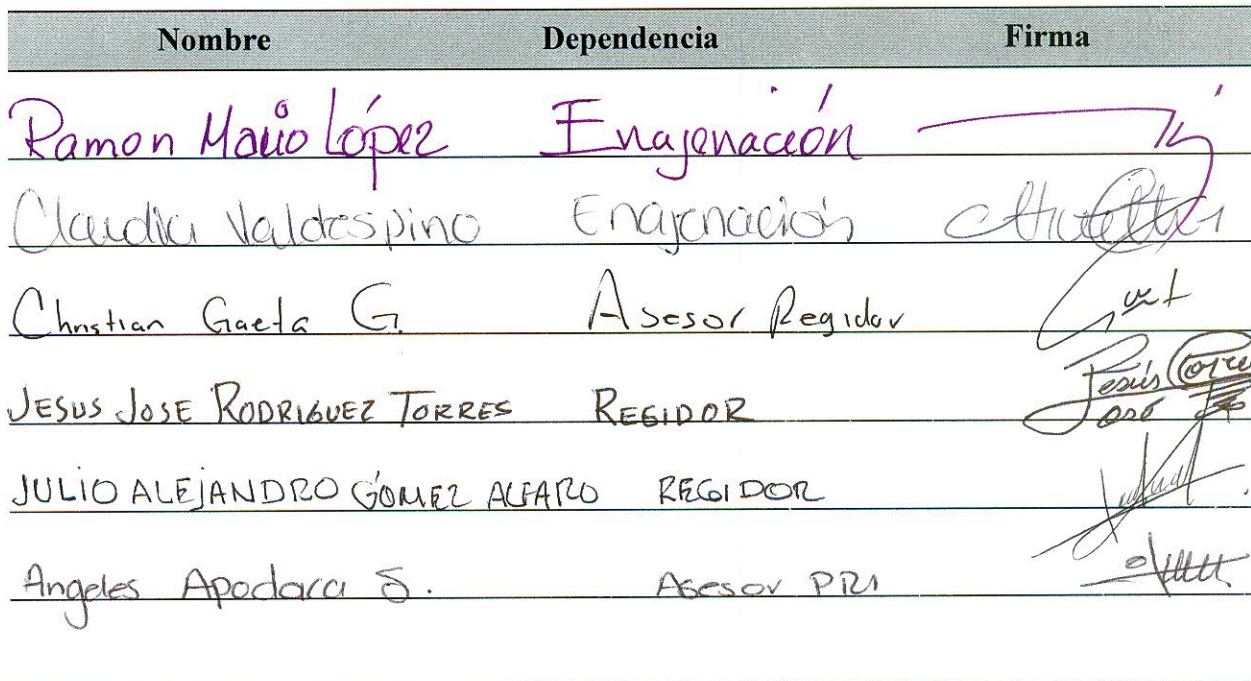 Nombre Dependencia Firma
Ramon Mario López Enajenación
Claudia Valdespino Enajenación
Christian Gaeta G. Asesor Regidor
JESUS JOSE RODRIGUEZ TORRES REGIDOR Jesús José Torres
JULIO ALEJANDRO GÓMEZ ALFARO REGIDOR
Angeles Apodaca S. Asesor PRI